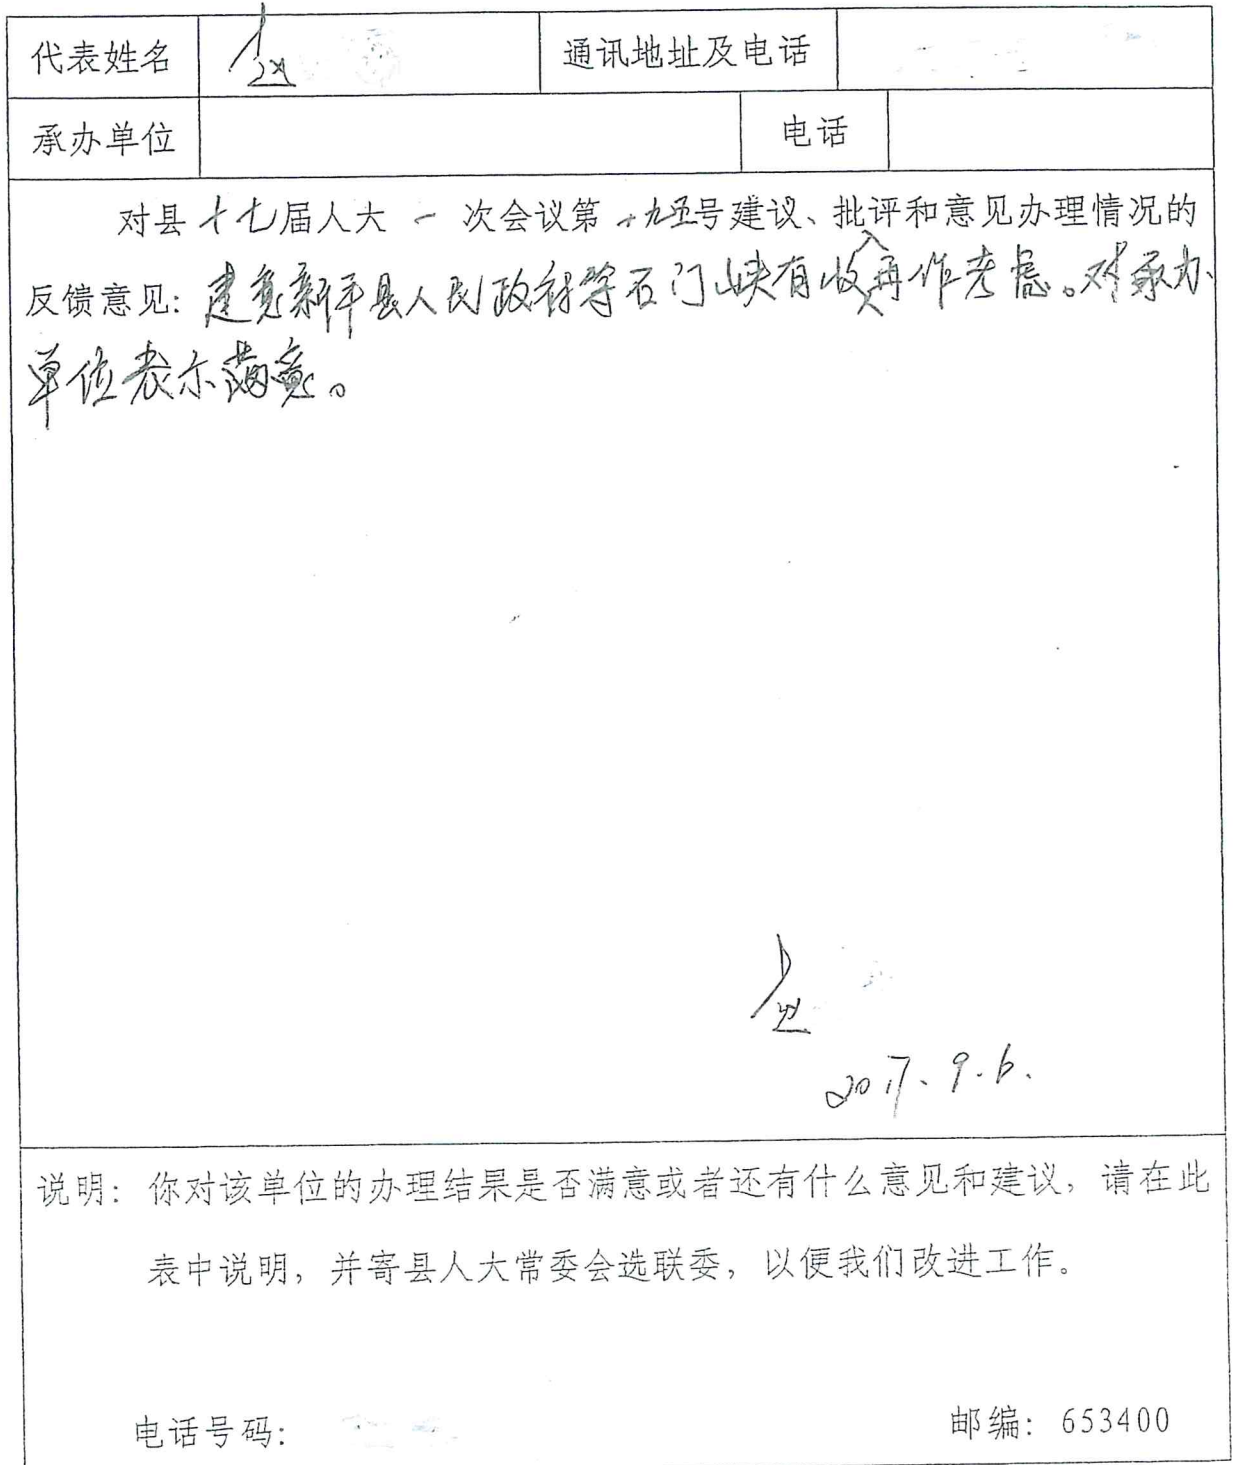 代表姓名 通讯地址及电话
承办单位 电话
对县十七届人大一次会议第九五号建议、批评和意见办理情况的
反馈意见：建议新平县人民政府等石门峡有收入再作考虑。对承办
单位表示满意。
2017.9.6.
说明：你对该单位的办理结果是否满意或者还有什么意见和建议，请在此
表中说明，并寄县人大常委会选联委，以便我们改进工作。
电话号码： 邮编：653400